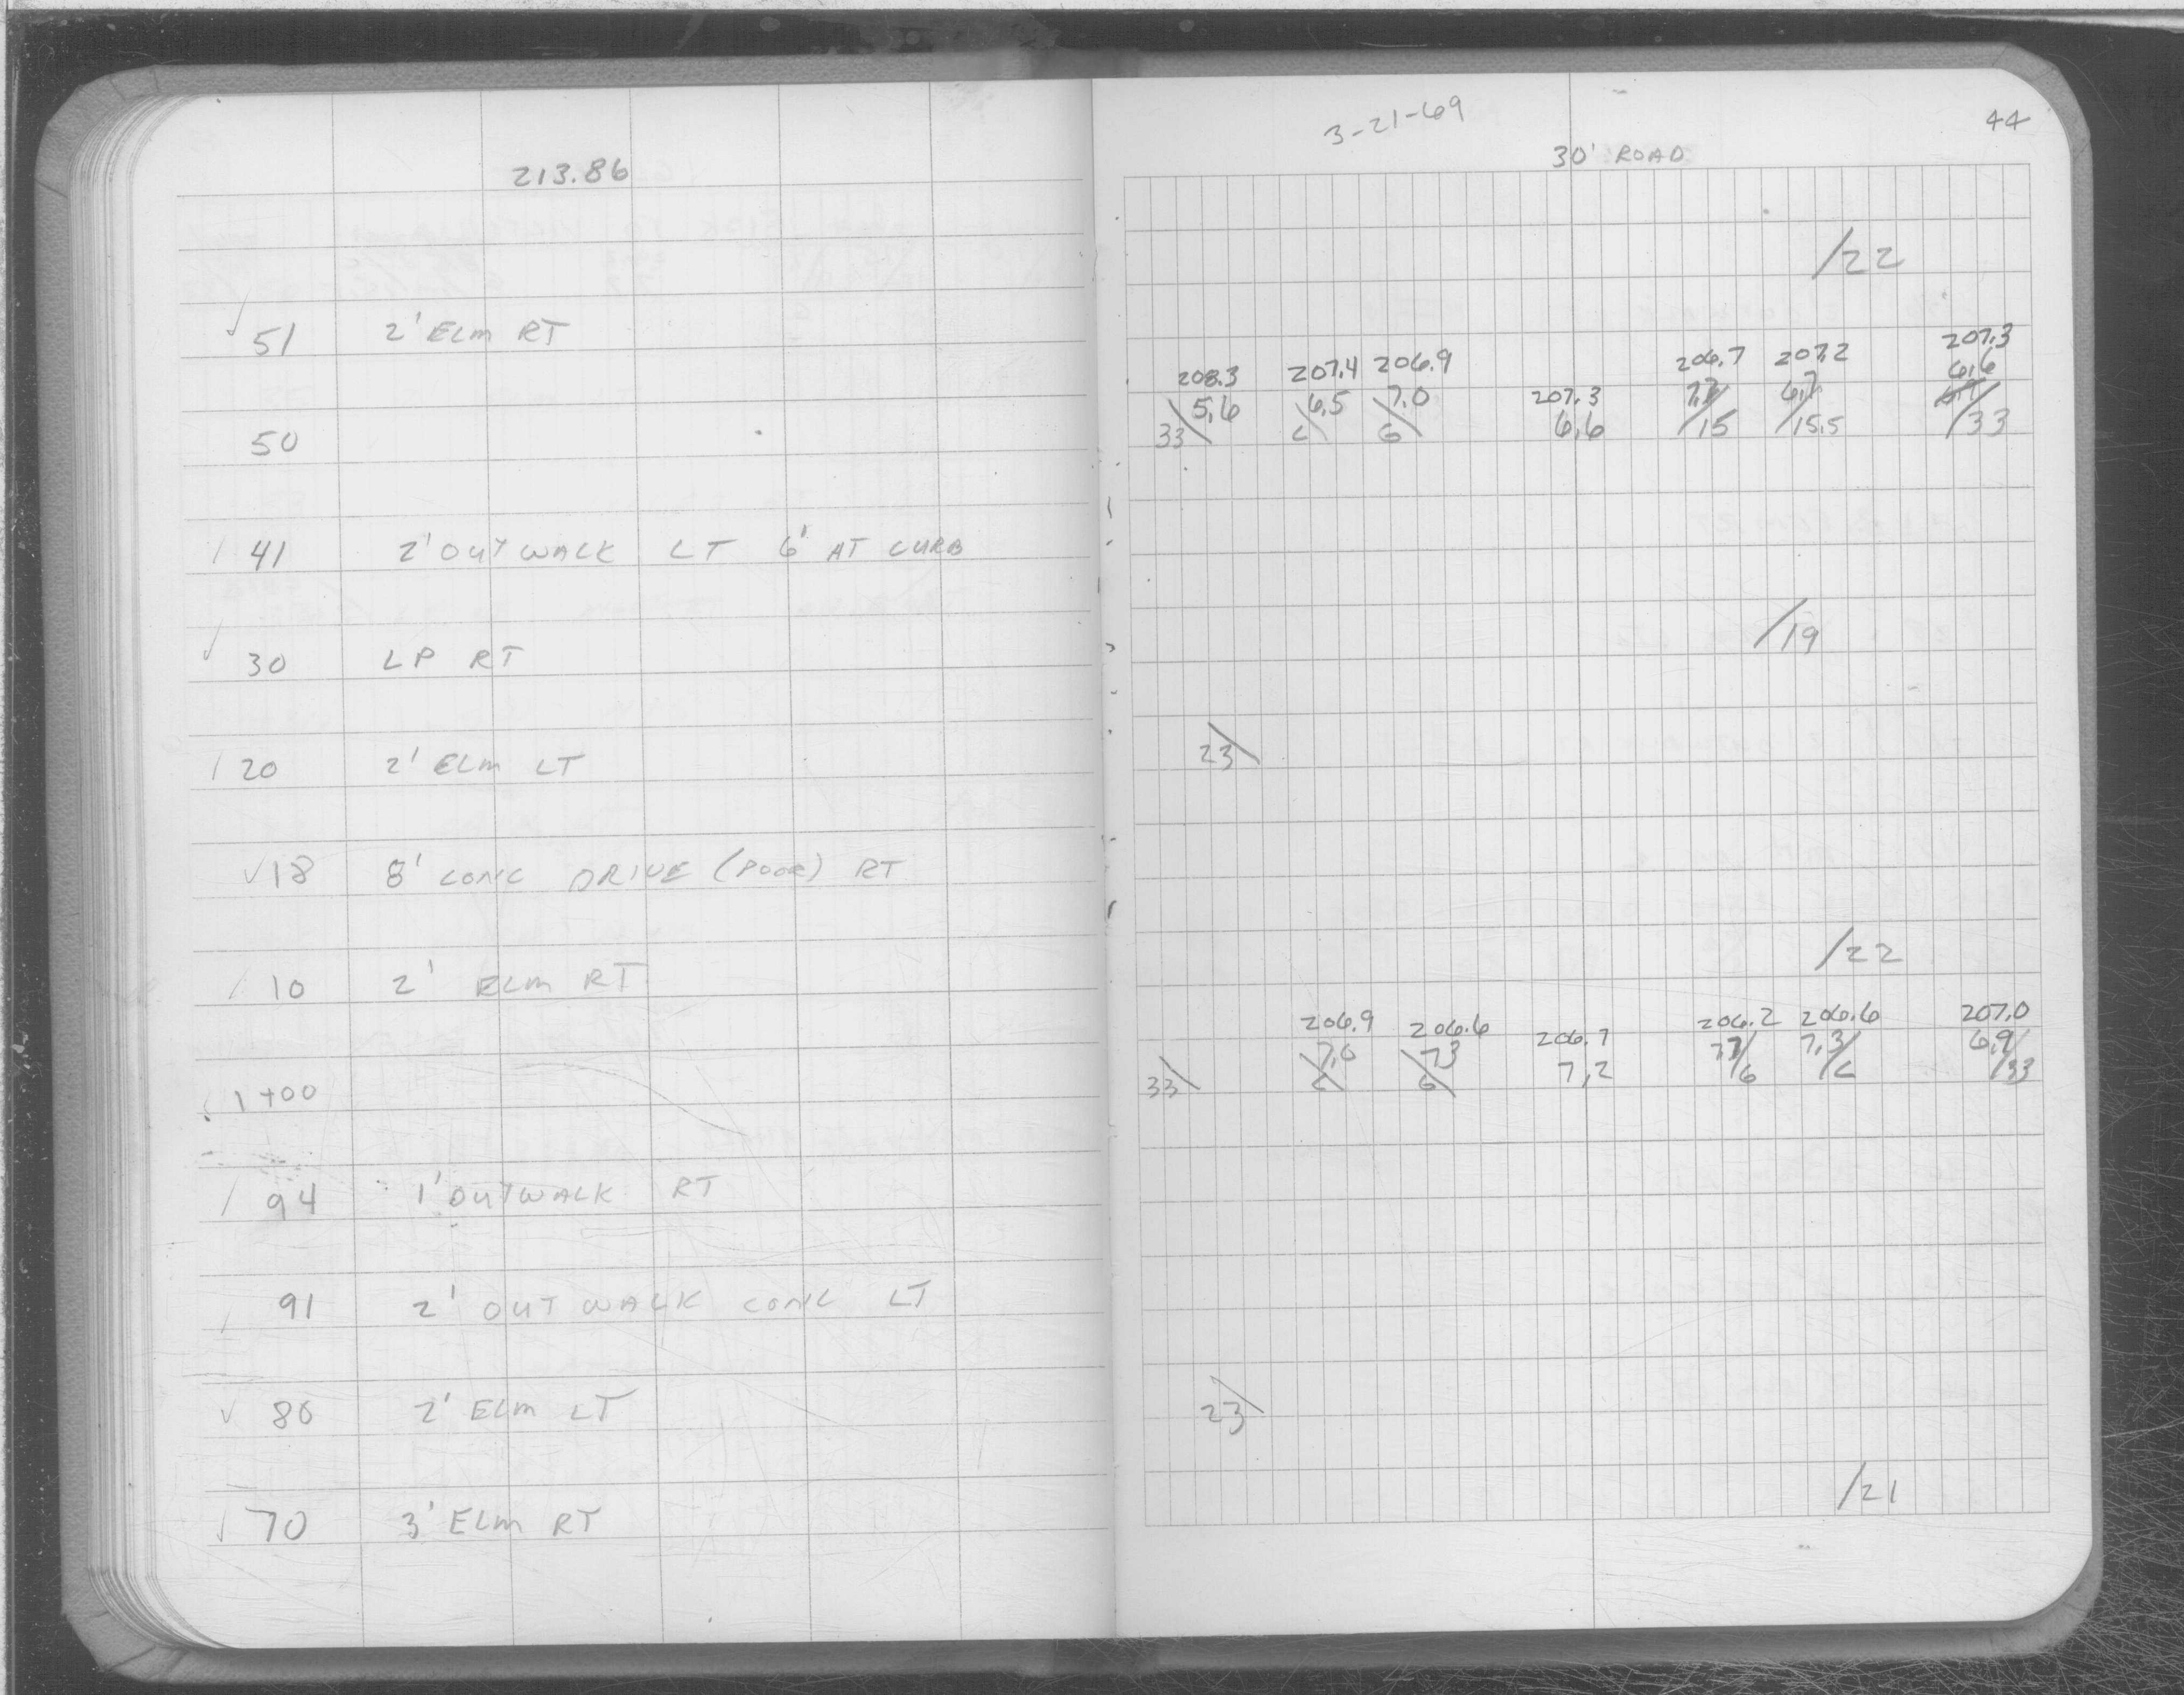 213.86
51 2' ELM RT
50
41 2' OUTWALK LT 6' AT CURB
30 LP RT
20 2' ELM LT
18 8' CONC DRIVE (POOR) RT
10 2' ELM RT
1+00
94 1' OUTWALK RT
91 2' OUTWALK CONC LT
80 2' ELM LT
70 3' ELM RT
3-21-69
44
30' ROAD
/22
208.3 207.4 206.9 207.3 206.7 207.2 207.3
5.6 6.5 7.0 6.6 6.7 6.6
33\ C\ G\ /15 /15.5 /33
/19
23\
/22
206.9 206.6 206.7 206.2 206.6 207.0
7.0 7.3 7.2 7.7 7.3 6.9
33\ C\ G\ /G /C /33
23\
/21